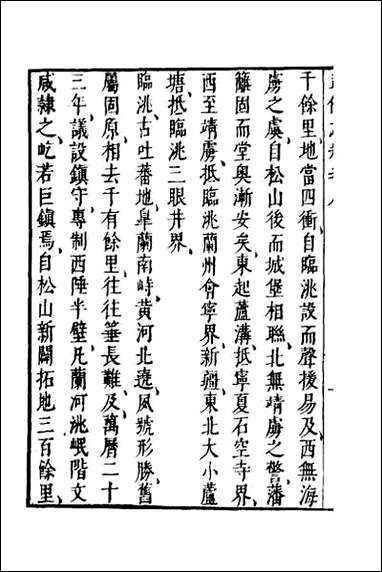 千餘里地當四衝自臨洮設而聲援易及西無海
虜之虞自松山後而城堡相聯北無靖虜之警藩
籬固而堂奧漸安矣東起蘆溝抵寧夏石空寺界
西至靖虜抵臨洮蘭州會寧界新疆東北大小蘆
塘抵臨洮三眼井界
臨洮古吐蕃地臯蘭南峙黃河北遶風號形勝舊
屬固原相去千有餘里往往箠長難及萬曆二十
三年議設鎮守專制西陲半壁凡蘭河洮岷階文
咸隸之屹若巨鎮焉自松山新闢拓地三百餘里